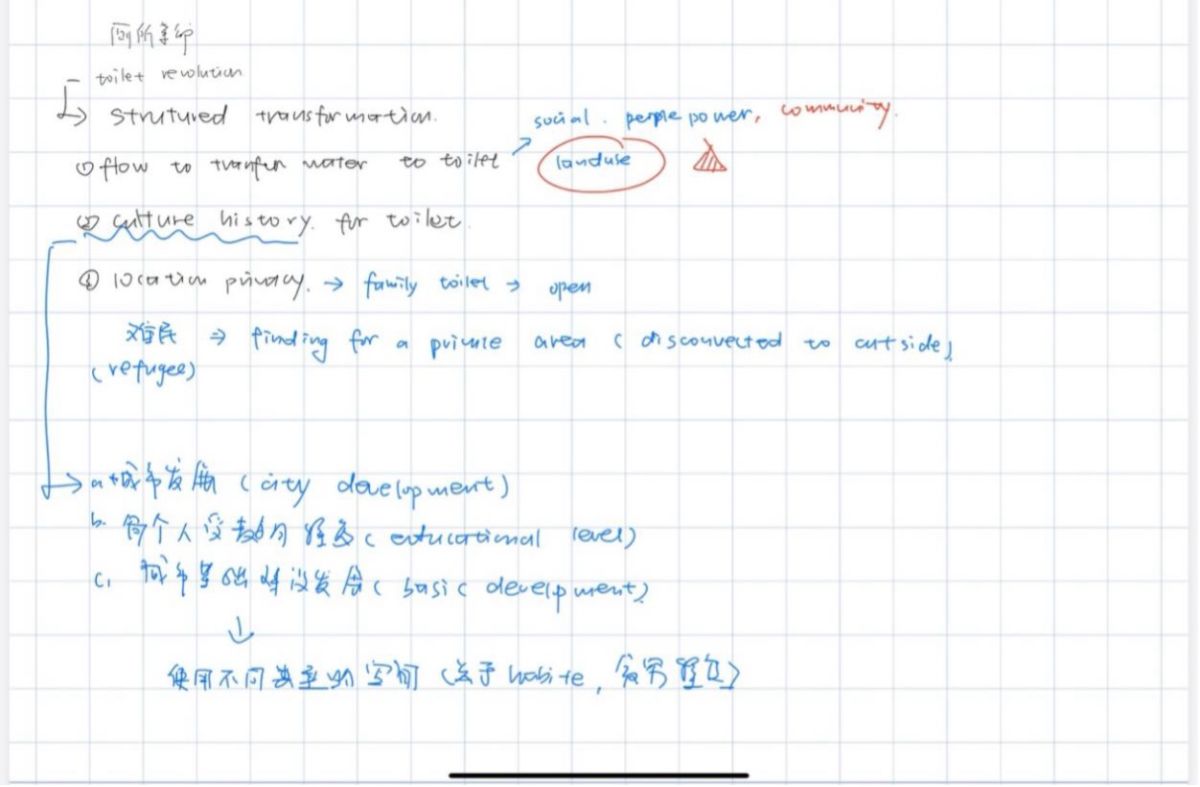 厕所革命
toilet revolution
strutured transformation.
social. people power, community.
① flow to tranfer water to toilet
landuse
② culture history. for toilet.
③ location privacy. → family toilet → open
难民 ⇒ finding for a private area (disconnected to outside)
(refugee)
a. 城市发展 (city development)
b. 每个人受教育程度 (educational level)
c. 城市基础建设发展 (basic development)
使用不同类型的空间 (关于 habite, 程度)